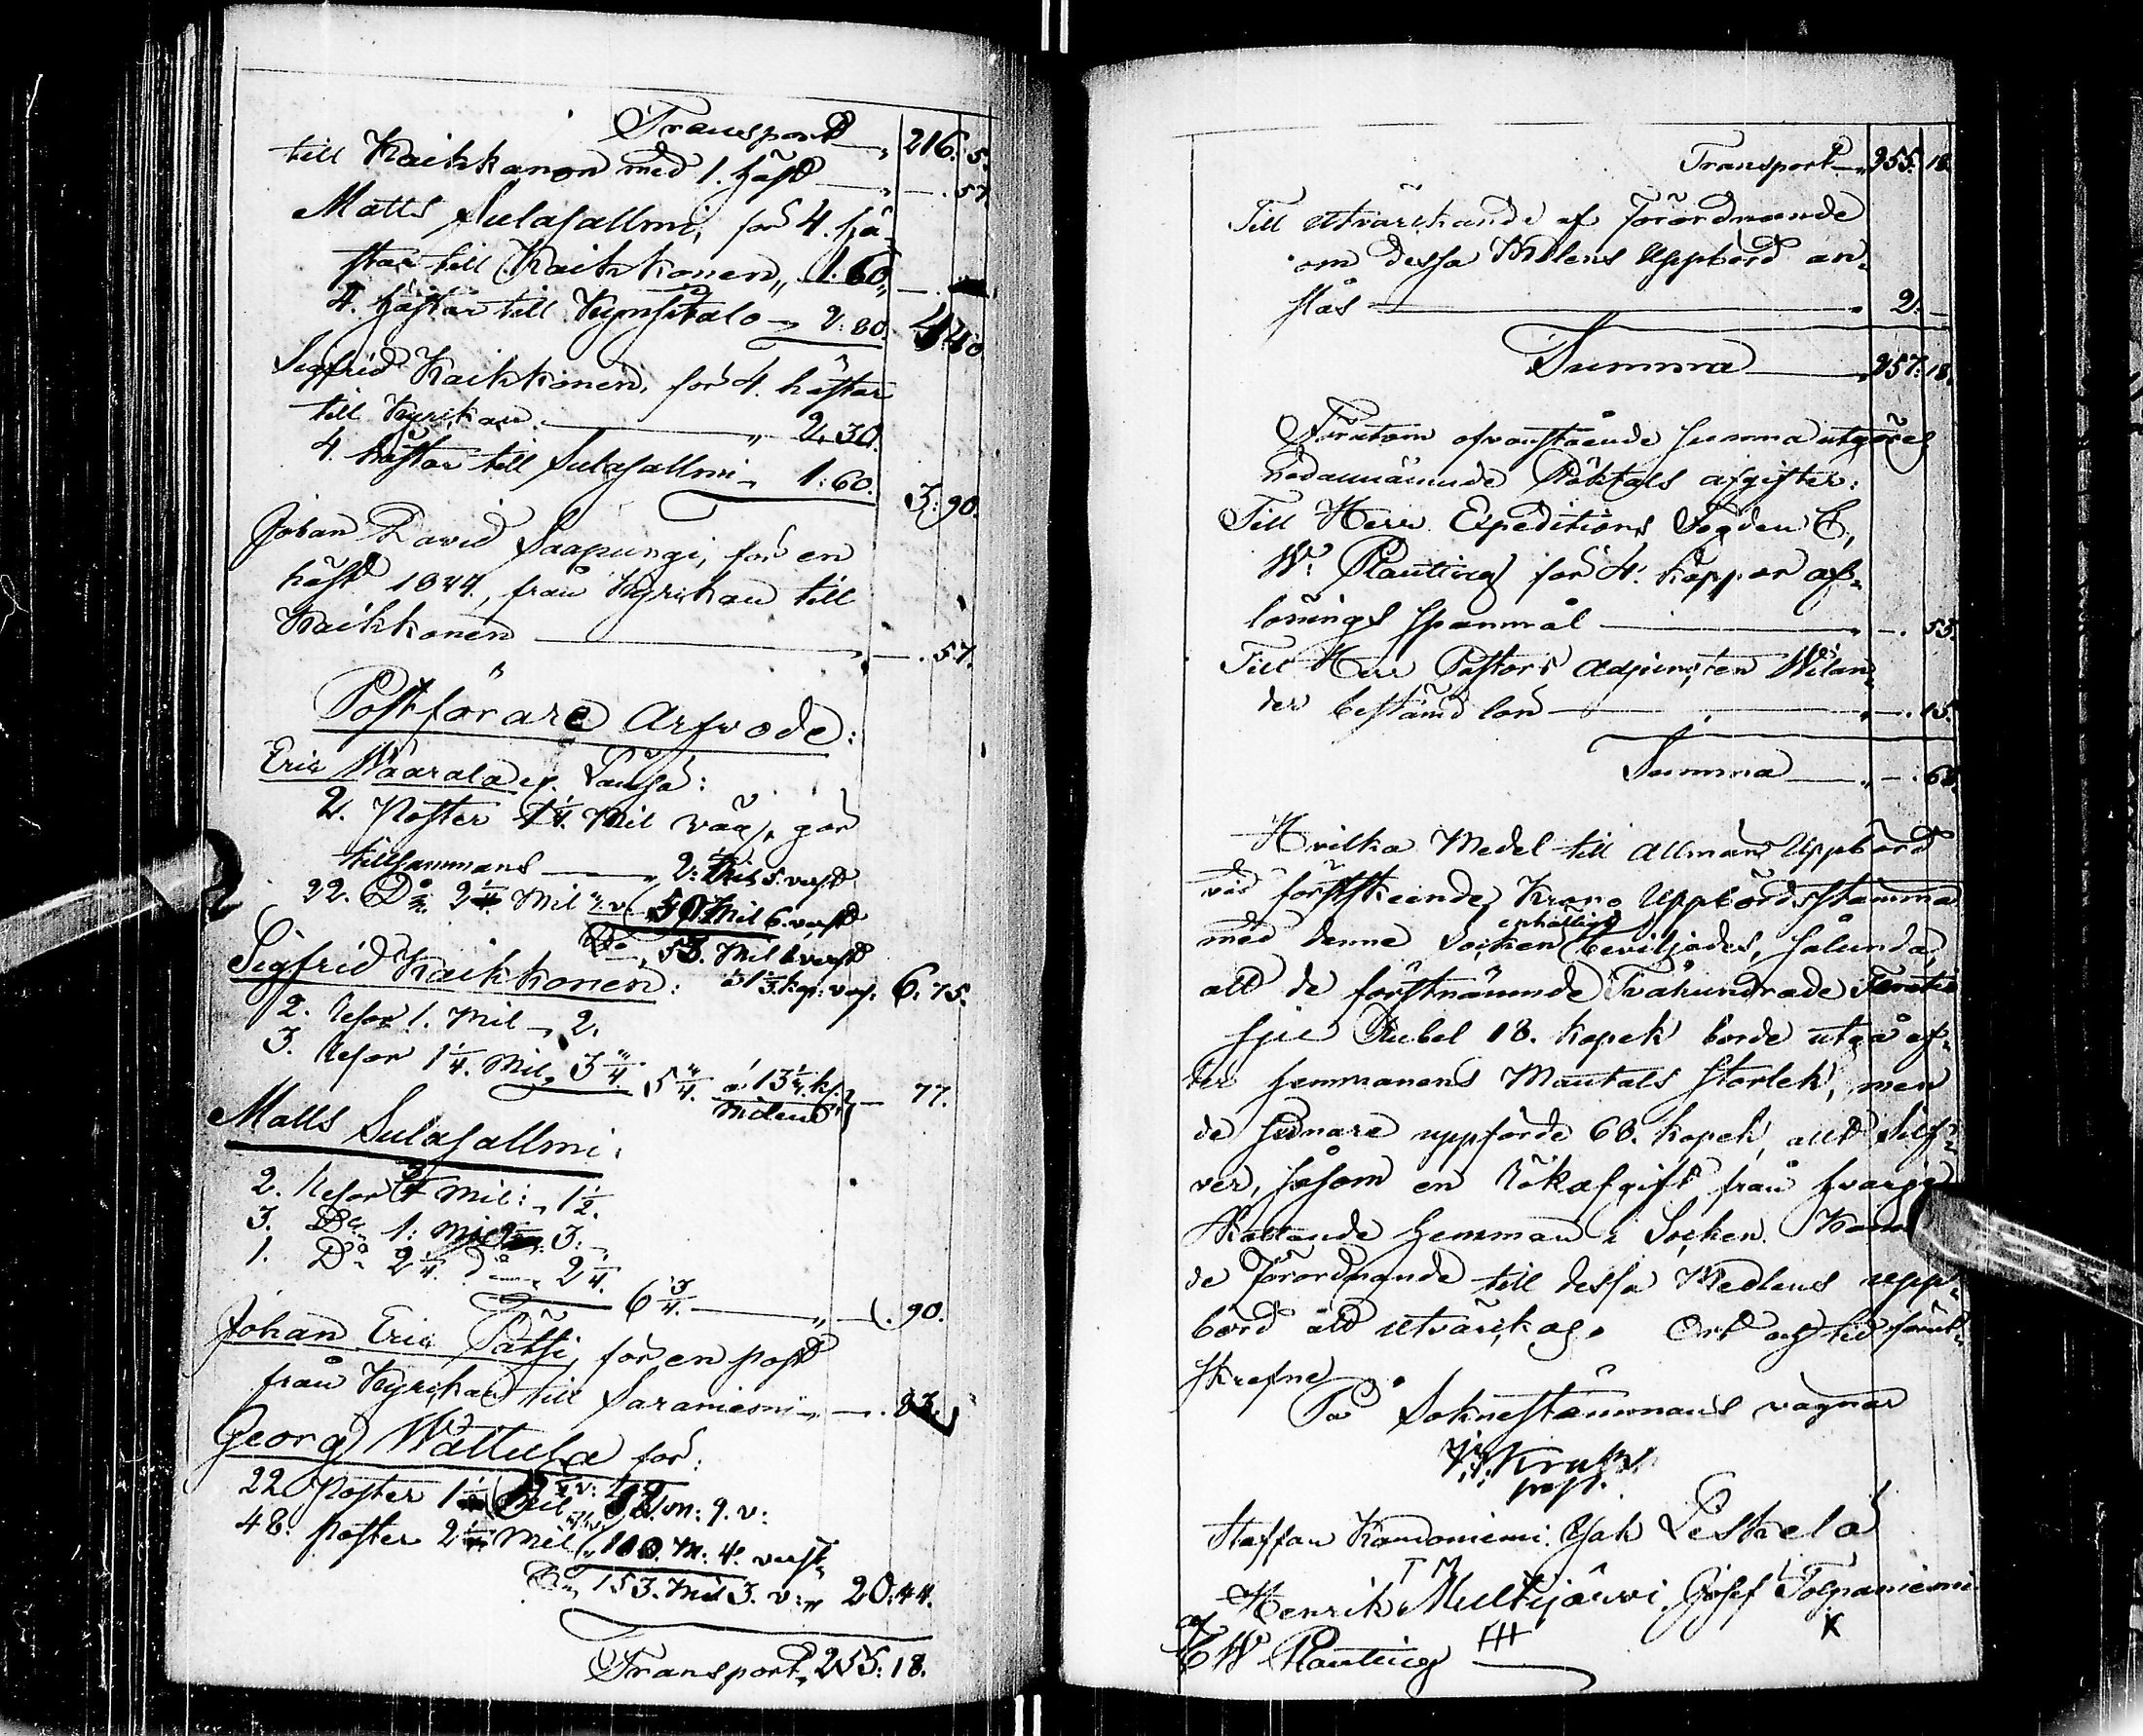 Transport " 216. 5.
till Kaikkonen med 1. häst — " — . 57
Matts Sulasallmi, för 4. hä-
star till Kaikkonen " 1. 60 "
4. hästar till Kynsitalo — " 2: 80. 4: 40
Sigfrid Kaikkonen, för 4. hästar
till Kyrkan — " 2. 30.
4. hästar till Sulasallmi " 1: 60. 3: 90.
Johan David Saapungi, för en
häst 1844, från Kyrkan till
Kaikkonen — " — . 57.
Postförare Arfvode:
Eric Waarala
2. Poster 1 1/4. Mil väg, gör
tillsammans — " 2: Mil 5. verst
22. Do 2 1/4 Mil " 50 Mil 6. verst
53. Mil 1 verst
Sigfrid Kaikkonen: 6. 75.
2. Resor 1. Mil " 2.
3. Resor 1 1/4. Mil " 3 3/4. 5 3/4. a 13 1/2 k.
milen — 77.
Matts Sulasallmi:
2. Resor 3/4 Mil: " 1 1/2.
3. Do 1: Mil 3: "
1. Do 2 1/4. Do " 2 1/4.
6 3/4. — " — . 90.
Johan Eric Pätsi, för en post
från Kyrkan till Saraniemi " — . 23
Georg Wättula för:
22 Poster 1 Mil 52. m: 9. v:
48. Poster 2 Mil " 100. M: 4. verst
153. Mil 3. v: " 20: 44.
Transport " 255: 18.
Transport — " 255. 18.
Till utvärckande af Förordnande
om dessa Medlens Uppbörd an-
slås — " 2. —
Summa — " 257: 18.
Förutom ofvanstående summa utgöres
nedannämnde Röktals afgifter:
Till Herr Expeditions Fogden C,
W. Planting för 4. kappor af-
lönings spanmål — " — . 53.
Till Herr Pastors Adjuncten Wilan-
der bestämd lön — " — . 15.
Summa — " — . 68.
Hvilka Medel till Allmän Uppbörd
vid förstskeende Krono Uppbördsstämma
med denne Socken enhälligt beviljades, sålunda,
att de förstnämnde Tvåhundrade Femtio
sju Rubel 18. kopek borde utgå ef-
ter hemmanens Mantals storlek, men
de sednare uppförde 68. kopek, allt Silf-
ver, såsom en Rökafgift från hvarje
skattande hemman i Socken.
de Förordnande till dessa Medlens upp-
börd att utvärckas. Ort och tid förut-
skrefne
På Soknestämmans vägnar
Staffan Kandoniemi. Jak Leskelä
T M
Henrik Multijärwi. Josef Tolpaniemi
C W Planting HH K